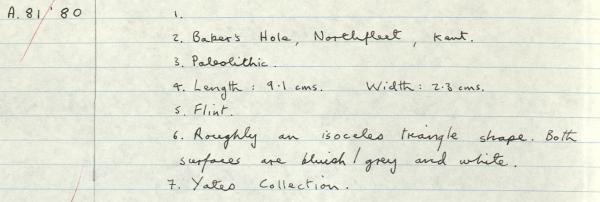 A.81'80
1.
2. Baker's Hole, Northfleet, Kent.
3. Paleolithic.
4. Length: 9.1 cms. Width: 2.3 cms.
5. Flint.
6. Roughly an isoceles triangle shape. Both
surfaces are bluish/grey and white.
7. Yates Collection.